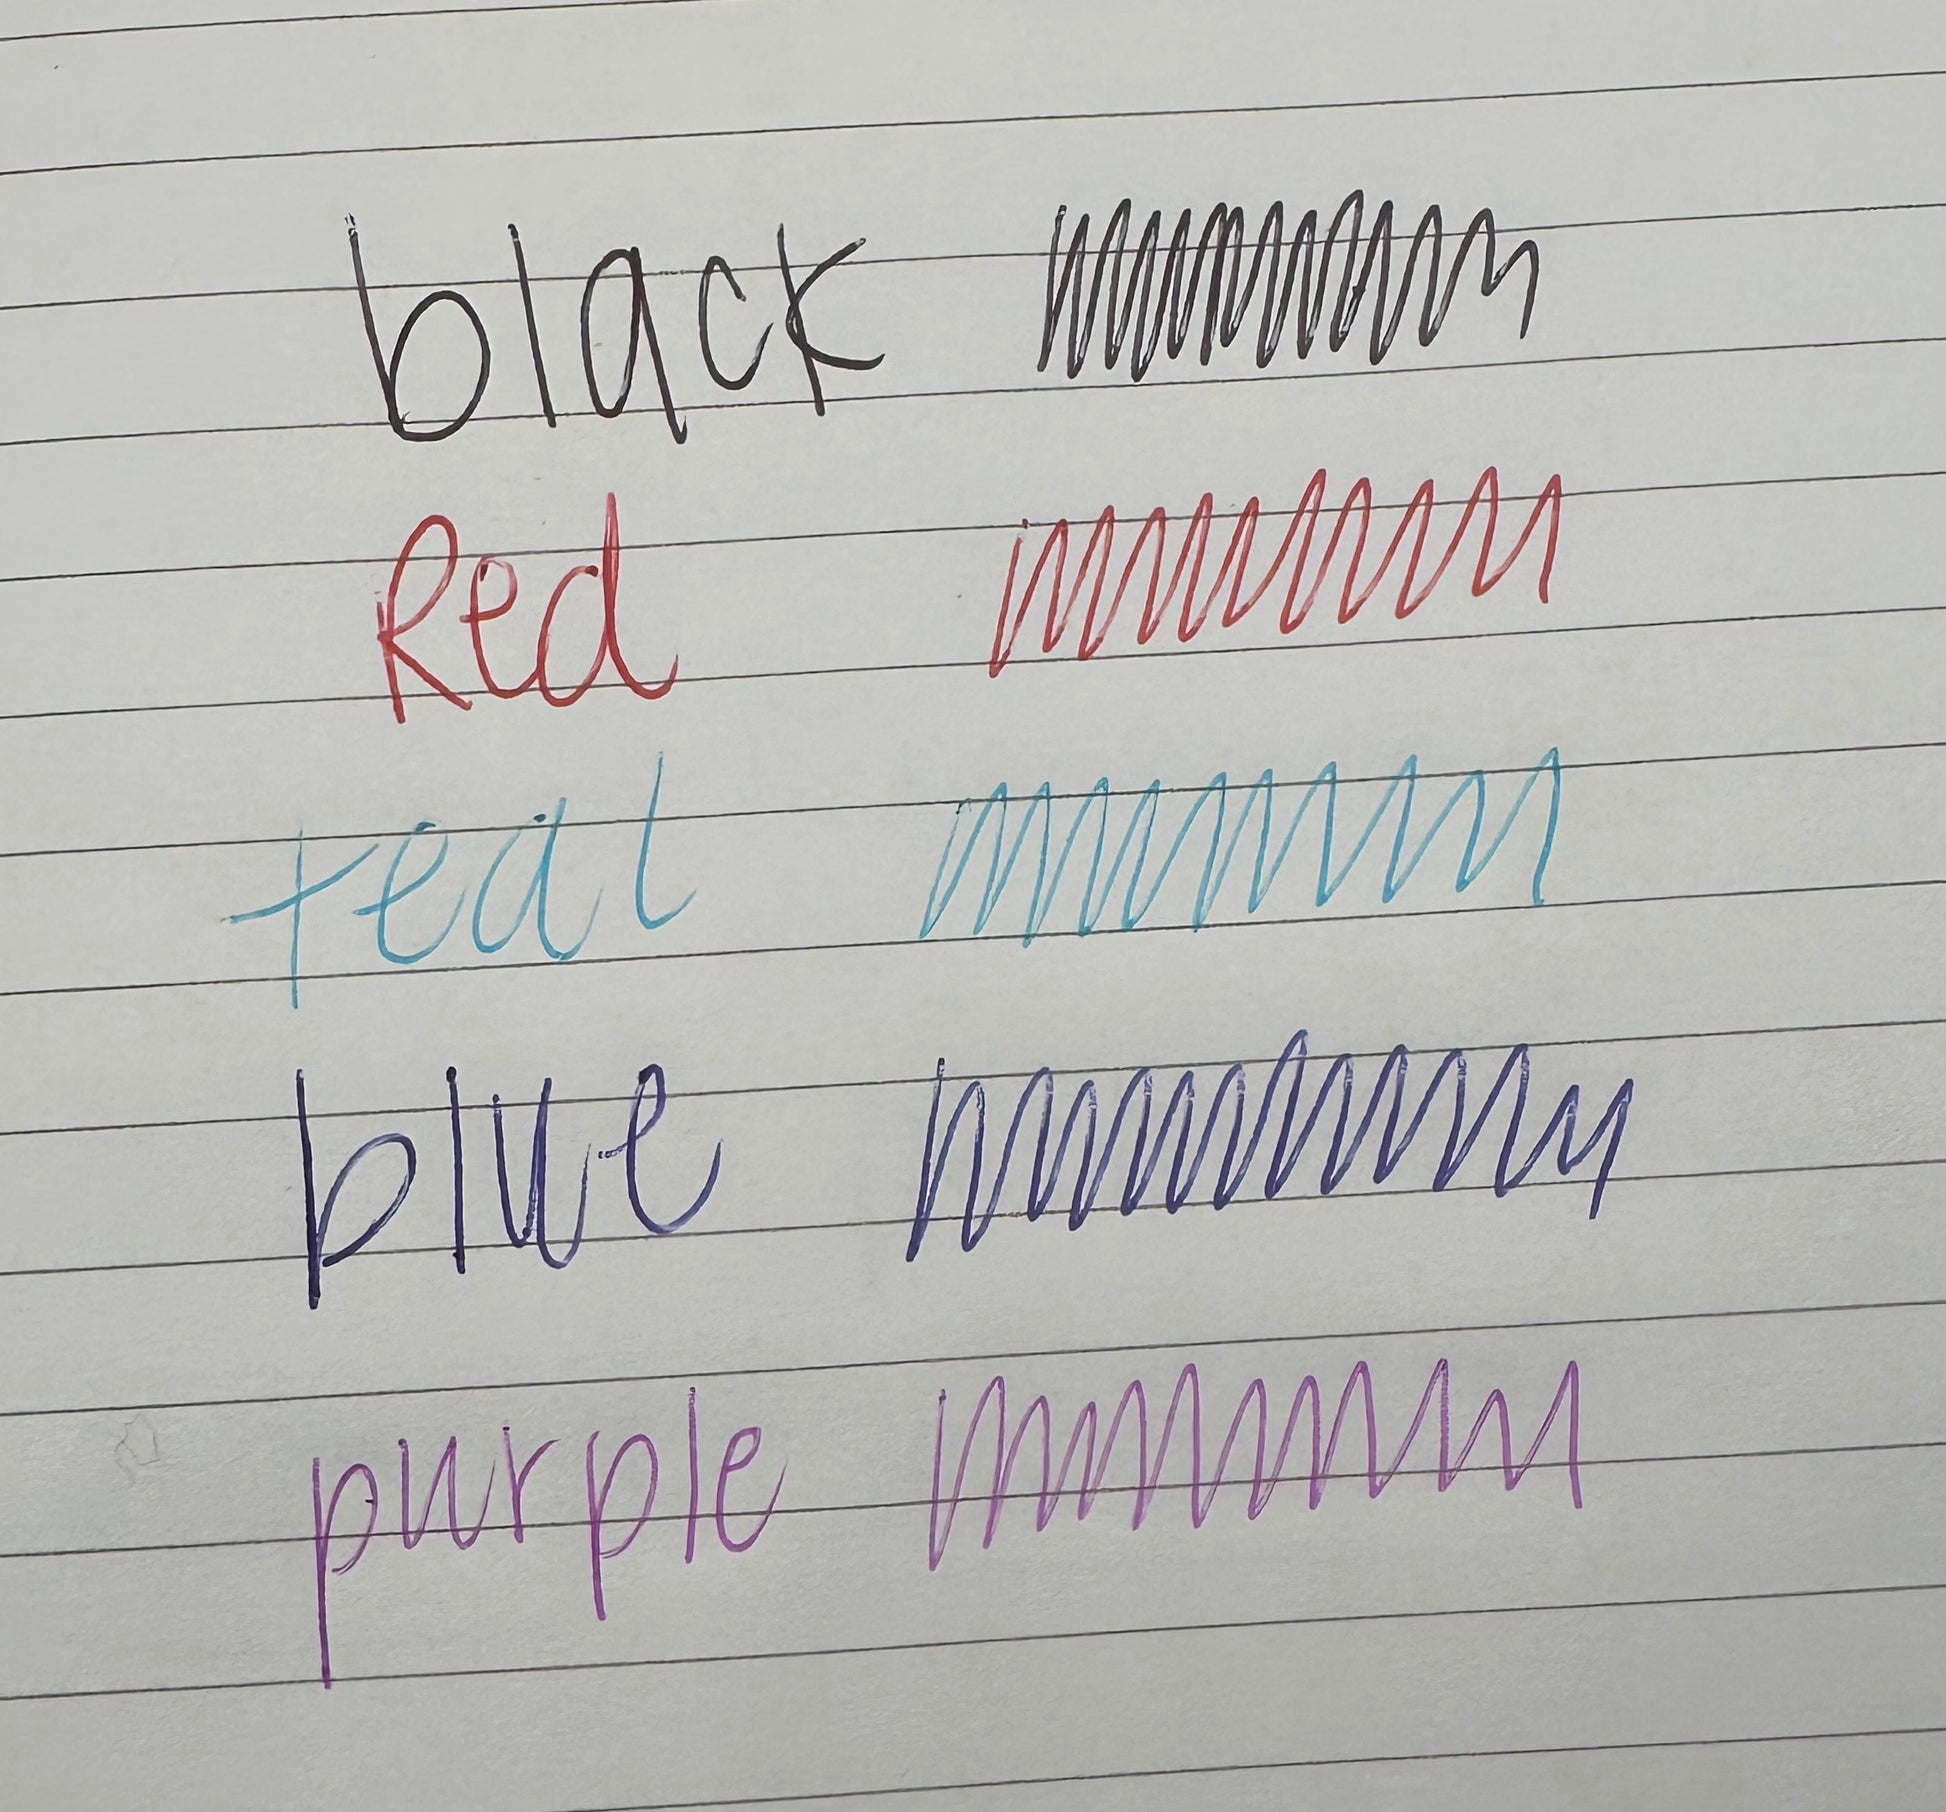 black
Red
teal
blue
purple